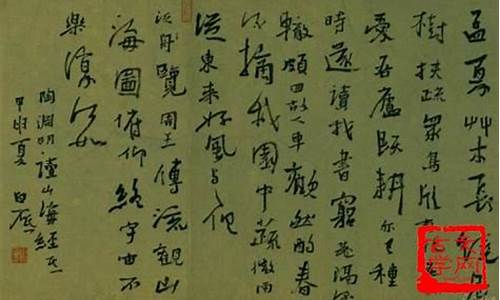 孟夏艸木長
樹扶疏眾鳥欣有
愛吾廬既耕亦已種
時還讀我書窮巷隔
轍頗回故人車歡然酌春
酒摘我園中蔬微雨
從東來好風与之俱
泛覽周王傳流觀山
海圖俯仰終宇宙不
樂復何如
陶淵明讀山海經其一
甲申夏